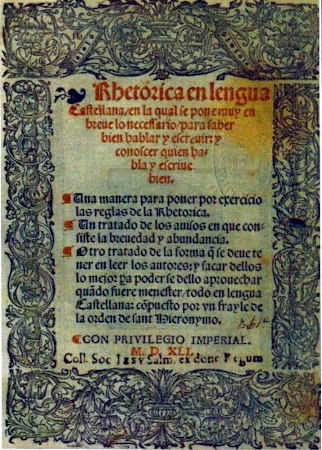 Rhetorica en lengua
Castellana/en la qual se pone muy en
breue lo necessario/para saber
bien hablar y escreuir: y
conoscer quien ha-
bla y escriue
bien.
¶ Una manera para poner por exercicio
las reglas de la Rhetorica.
¶ Un tratado de los auisos en que con-
siste la breuedad y abundancia.
¶ Otro tratado de la forma q̃ se deue te
ner en leer los autores: y sacar dellos
lo mejor p̃a poder se dello aprouechar
quãdo fuere menester/todo en lengua
Castellana: cõpuesto por vn frayle de
la orden de sant Hieronymo.
¶ CON PRIVILEGIO IMPERIAL.
M. D. XLI.
Coll. Soc. Iesv Salm. ex dono Regum